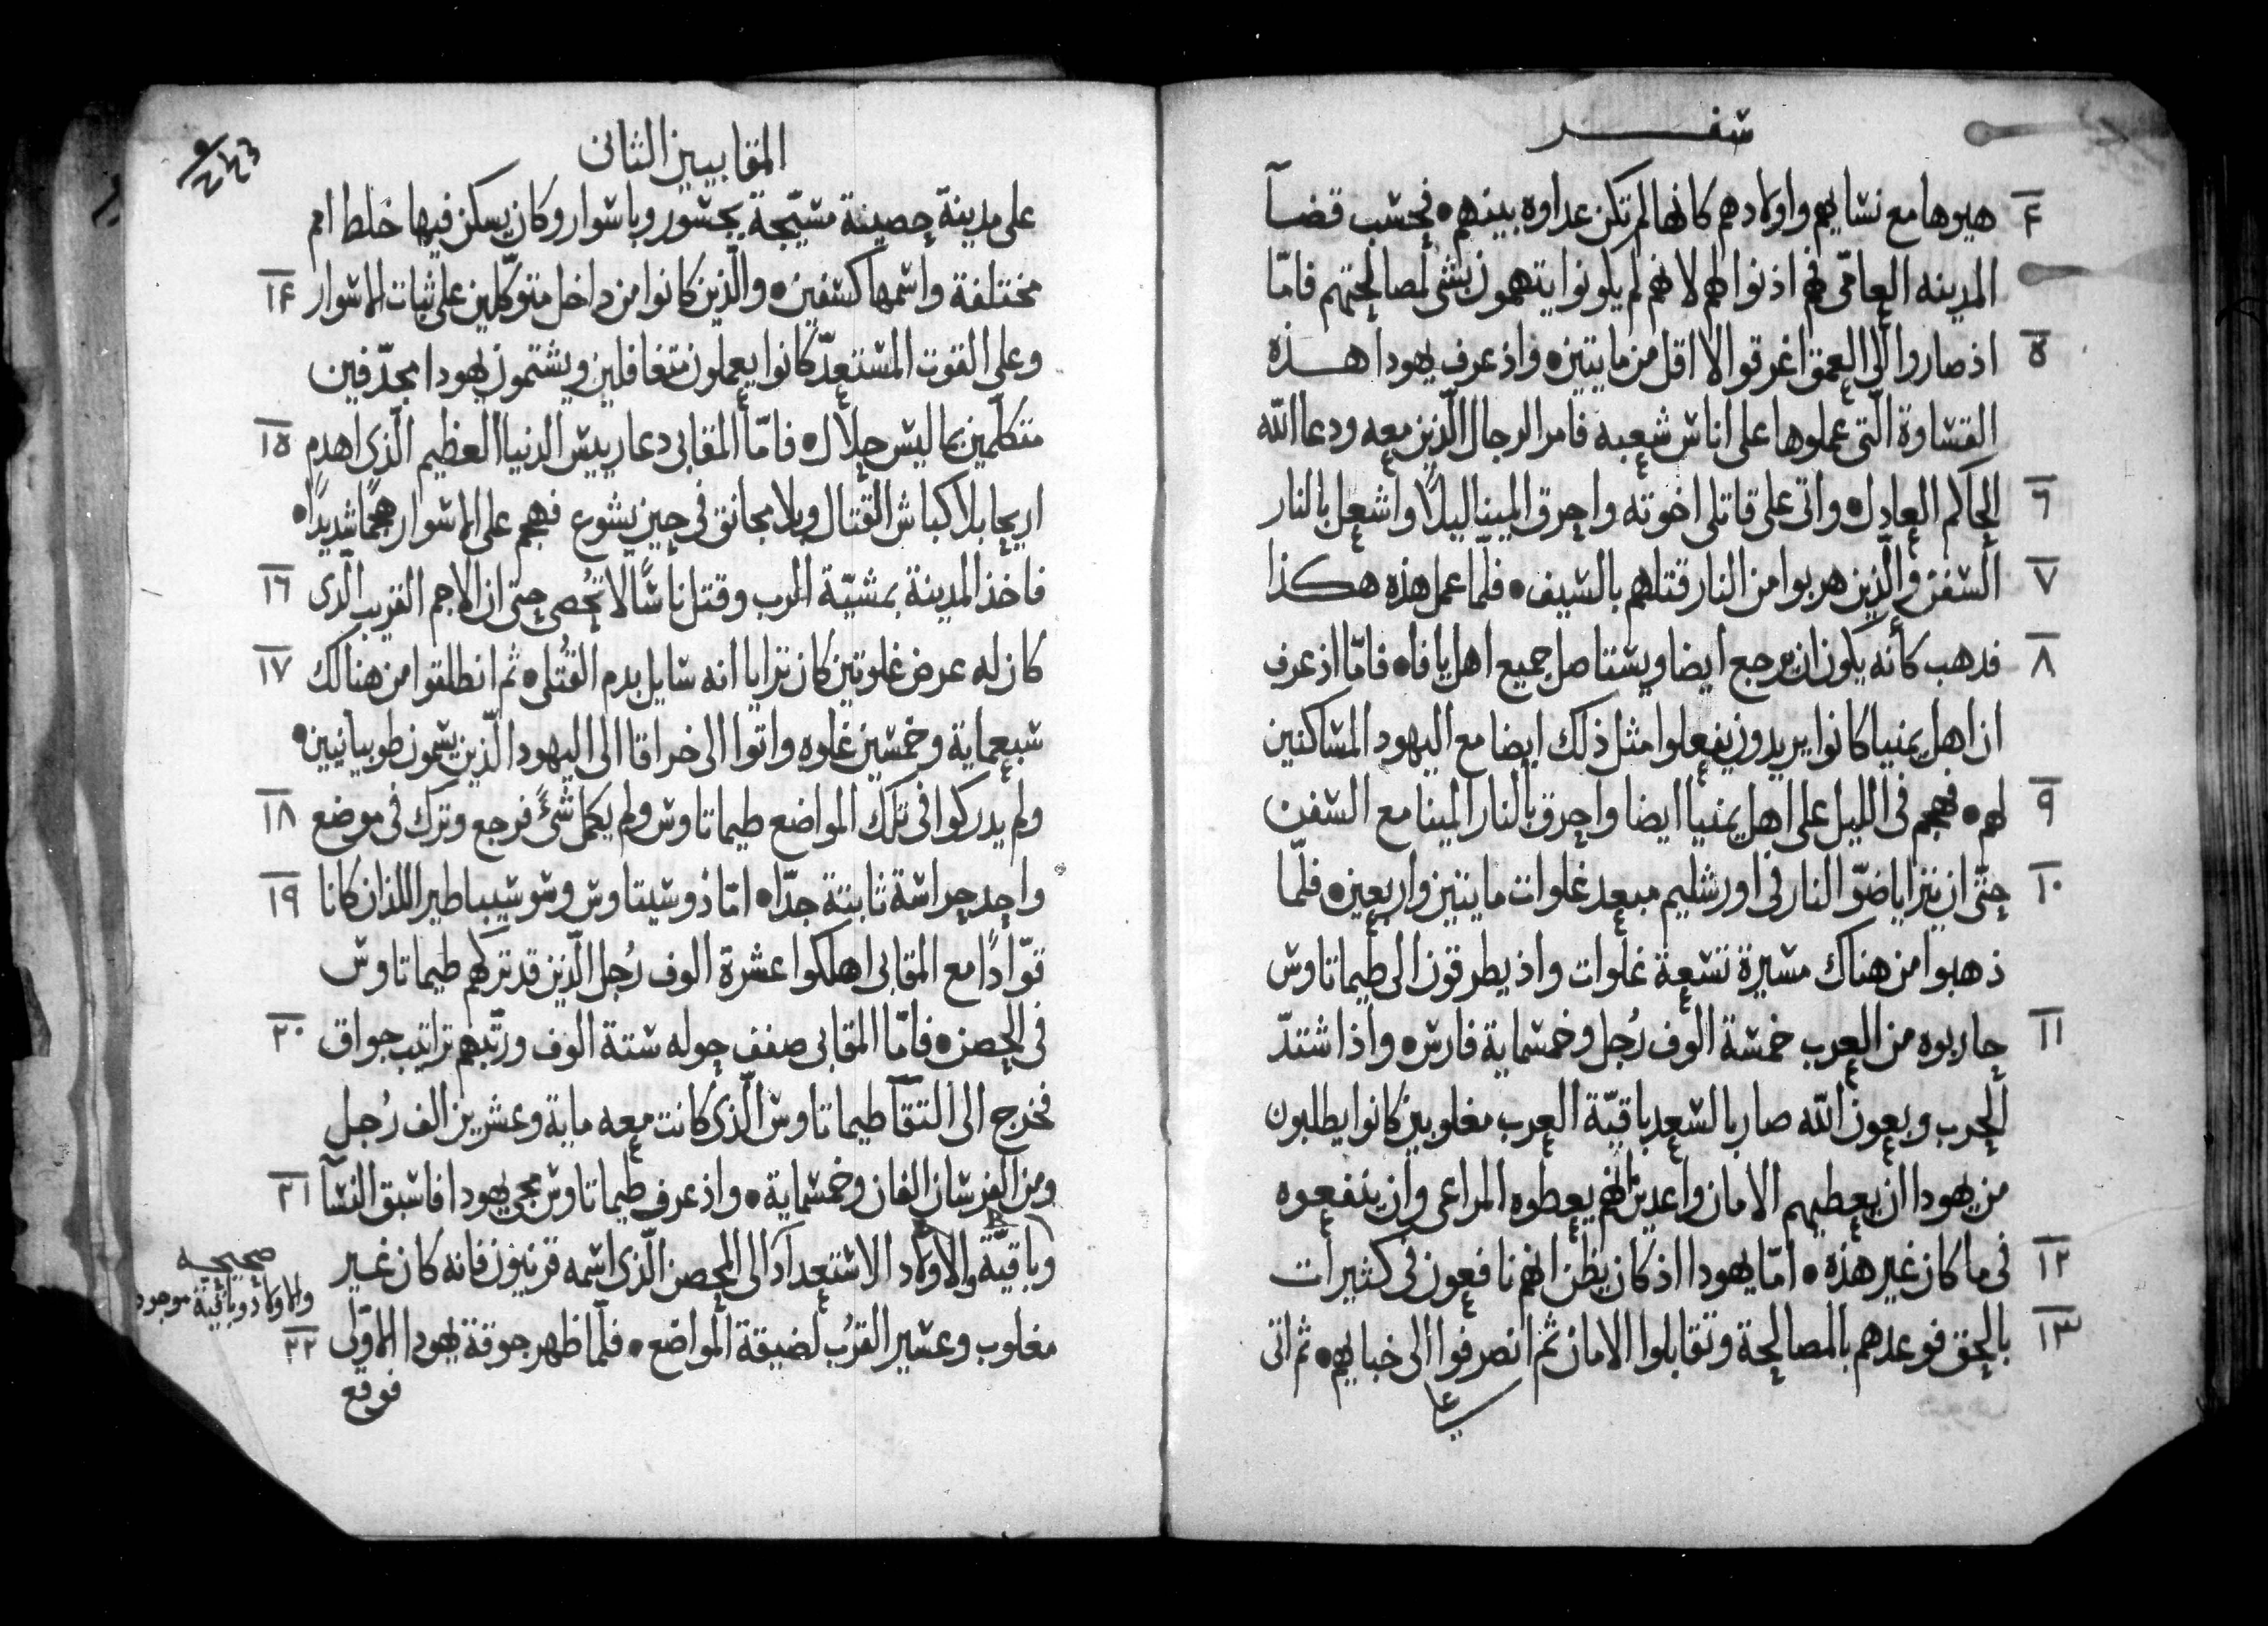 سفر
٤ هيوها مع نسايهم واولادهم كانها لم تكن عداوه بينهم • فحسب قضآ
المدينه العامّى فهم اذنوا لهم لانهم لم يكونوا يتهمون بشى لمصالحتهم فامّا
٥ اذ صاروا الى العمق اغرقوا الا اقل من مايتين • واذ عرف يهودا هذه
القساوة الّتى عملوها على اناس شعبه فامر الرجال الّذين معه ودعا اللّه
٦ الحاكم العادل • واتى على قاتلى اخوته واحرق المينا ليلًا واشعل بالنار
٧ السفن والّذين هربوا من النار قتلهم بالسيف • فلمّا عمل هذه هكذا
٨ فدهب كأنه يكون ان يرجع ايضا ويستاصل جميع اهل يافا • فامّا اذ عرف
ان اهل يمنيا كانوا يريدون يفعلوا مثل ذلك ايضا مع اليهود المساكنين
٩ لهم • فهجم فى الليل على اهل يمنيا ايضا واحرق بالنار المينا مع السفن
١٠ حتّى ان يترايا ضوّ النار فى اورشليم مبعد غلوات مايتين واربعين • فلمّا
ذهبوا من هناك مسيرة تسعة غلوات واذ يطرقون الى طيماتاوس
١١ حاربوه من العرب خمسة الوف رُجل وخمسماية فارس • واذا شتدّ
الحرب وبعون اللّه صار بالسعد باقيّة العرب مغلوبين كانوا يطلبون
من يهودا ان يعطيهم الامان واعدين انهم يعطوه المراعى وان ينفعوه
١٢ فى ما كان غير هذه • امّا يهودا اذ كان يظن انهم نافعون فى كثيرات
١٣ بالحق فوعدهم بالمصالحة وتقابلوا الامان ثم انصرفوا الى خبايهم • ثم اتى
على
المقابيين الثانى
٢٤٣
على مدينة حصينة مسيّجة بجسور وباسوار وكان يسكن فيها خلط امم
١٤ مختلفة واسمها كسفين • والّذين كانوا من داخل متوكّلين على ثبات الاسوار
وعلى القوت المستعدّ كانوا يعملون متغافلين ويشتمون يهودا مجدّفين
١٥ متكلّمين بما ليس حلال • فامّا المقابى دعا رييس الدنيا العظيم الّذى اهدم
اريحا بلا كباش القتال وبلا مجانق فى حين يشوع فهجم على الاسوار هجمًا شديدًا •
١٦ فاخذ المدينة بمشيّة الرب وقتل ناسًا لا تُحصى حتى ان الاجم القريب الّدى
١٧ كان له عرض غلوتين كان يترايا انه سايل بدم القُتلى • ثم انطلقوا من هنالك
سبعماية وخمسين غلوه واتوا الى خراقا الى اليهود الّذين يسمون طوبيانيين •
١٨ ولم يدركوا فى تلك المواضع طيماتاوس ولم يكمل شىً فرجع وترك فى موضع
١٩ واحد حراسة ثابتة جدّا • امّا ذوسيتاوس وسوسيباطير اللذان كانا
قوّادًا مع المقابى اهلكوا عشرة الوف رُجل الّذين قد تركهم طيماتاوس
٢٠ فى الحصن • فامّا المقابى صفف حوله ستة الوف ورتّبهم تراتيب جواق
فخرج الى التقآ طيماتاوس الّذى كانت معه ماية وعشرين الف رُجل
٢١ ومن الفرسان الفان وخمسماية • واذ عرف طيماتاوس مجى يهودا فاسبق النسآ
وباقيّة والاولاد الاستعدآد الى الحصن الّذى اسمه قرنيون فانه كان غير
صحيحه
والاولاد وباقية موجود
٢٢ مغلوب وعسير القرُب لضيقة المواضع • فلمّا ظهر جوقة يهودا الاوّلى
فوقع